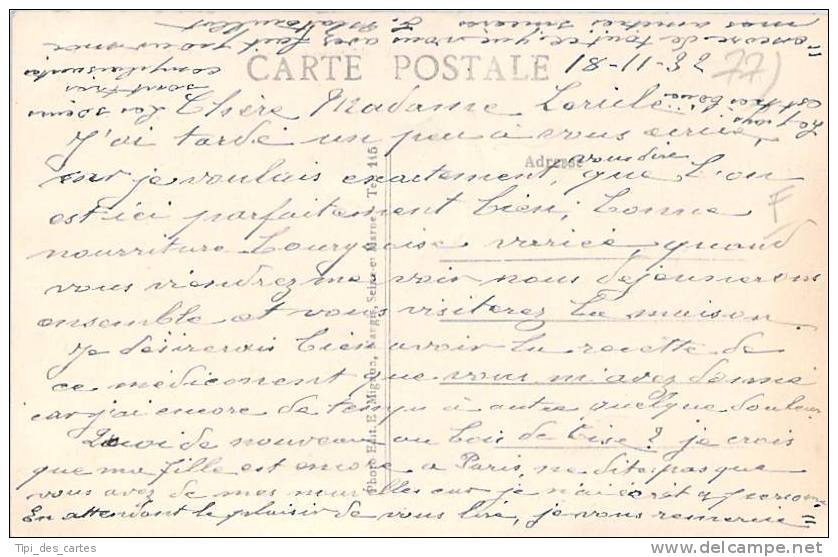 CARTE POSTALE
18-11-32
77)
Chère Madame
J'ai tardé un peu à vous écrire,
Adresse
vous dire
car je voulais exactement, que l'on
est ici parfaitement bien; bonne
F
nourriture bourgeoise variée, quand
vous viendrez me voir nous déjeunerons
ensemble et vous visiterez la maison.
Je désirerais bien avoir la recette de
ce médicament que vous m'avez donné
car j'ai encore de temps à autre quelque douleur
Quoi de nouveau au bois de ? je crois
que ma fille est encore à Paris, ne dite pas que
vous avez de mes nouvelles car je n'ai écrit à personne
En attendant le plaisir de vous lire, je vous remercie =
= encore de tout ce que vous avez fait pour moi
mes amitiés
Les soins
sont très
complaisants
Photo Edit. E. Mignon, Nangis, Seine-et-Marne - Tel. 115
Tipi_des_cartes
delcampe.net